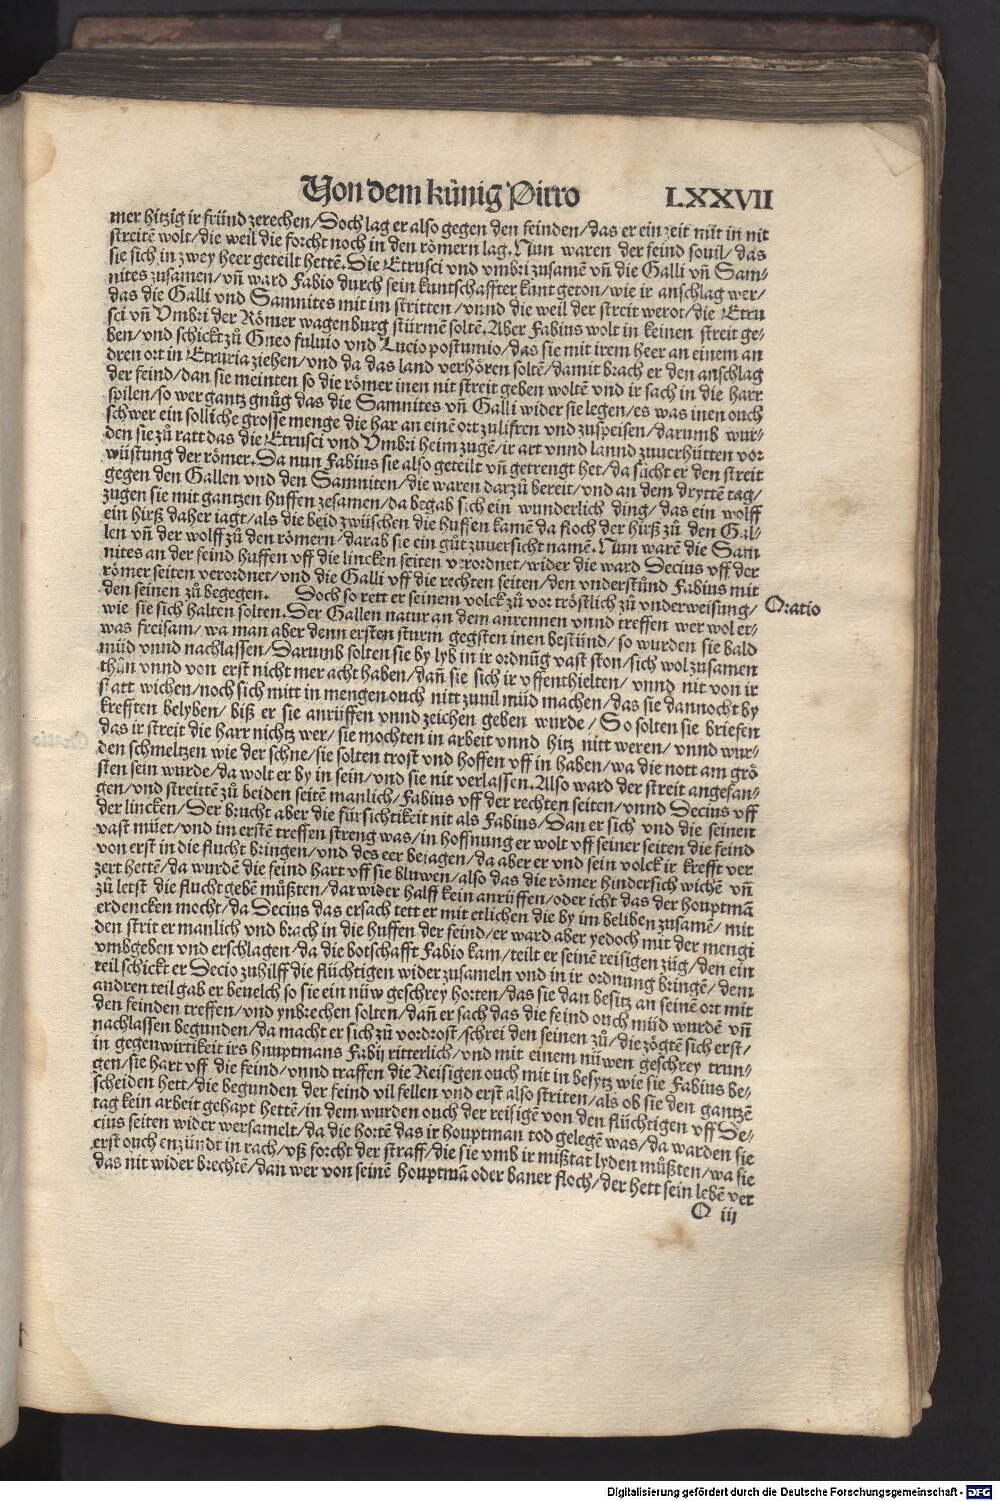 Von dem künig Pirro LXXVII
mer hitzig ir fründ zerechen/Doch lag er also gegen den feinden/das er ein zeit mit in nit
streitē wolt/die weil die forcht noch in den römern lag. Nun waren der feind souil/das
sie sich in zwey heer geteilt hettē. Die Etrusci vnd vmbri zusamē vñ die Galli vñ Sam⸗
nites zusamen/vñ ward Fabio durch sein kuntschaffter kunt geton/wie ir anschlag wer/
das die Galli vnd Samnites mit im stritten/vnnd die weil der streit werot/die Etru
sci vñ Vmbri der Römer wagenburg stürmē soltē. Aber Fabius wolt in keinen streit ge⸗
ben/vnd schickt zů Gneo fuluio vnd Lucio postumio/das sie mit irem heer an einem an
dren ort in Etruria ziehen/vnd da das land verhören soltē/damit brach er den anschlag
der feind/dan sie meinten so die römer inen nit streit geben woltē vnd ir sach in die harr
spilen/so wer gantz gnůg das die Samnites vñ Galli wider sie legen/es was inen ouch
schwer ein solliche grosse menge die har an einē ort zulifren vnd zuspeisen/darumb wur⸗
den sie zů ratt das die Etrusci vnd Vmbri heim zugē/ir art vnnd lannd zuuerhütten vor
wüstung der römer. Da nun Fabius sie also geteilt vñ getrengt het/da sůcht er den streit
gegen den Gallen vnd den Samniten/die waren darzů bereit/vnd an dem dryttē tag/
zugen sie mit gantzen huffen zesamen/da begab sich ein wunderlich ding/das ein wolff
ein hirß daher iagt/als die beid zwüschen die huffen kamē da floch der hirß zů den Gal⸗
len vñ der wolff zů den römern/darab sie ein gůt zuuersicht namē. Nun warē die Sam
nites an der feind huffen vff die lincken seiten verordnet/wider die ward Decius vff der
römer seiten verordnet/vnd die Galli vff die rechten seiten/den vnderstůnd Fabius mit
den seinen zů begegen. Doch so rett er seinem volck zů vor tröstlich zů vnderweisung/
Oratio
wie sie sich halten solten. Der Gallen natur an dem anrennen vnnd treffen wer wol et⸗
was freisam/wa man aber denn ersten sturm gegsten inen bestünd/so wurden sie bald
müd vnnd nachlassen/Darumb solten sie by lyb in ir ordnūg vast ston/sich wol zusamen
thůn vnnd von erst nicht mer acht haben/dañ sie sich ir vffenthielten/vnnd nit von ir
statt wichen/noch sich mitt in mengen ouch nitt zuuil müd machen/das sie dannocht by
krefften belyben/biß er sie anrüffen vnnd zeichen geben wurde/So solten sie briefen
das ir streit die harr nichtz wer/sie mochten in arbeit vnnd hitz nitt weren/vnnd wur⸗
den schmeltzen wie der schne/sie solten trost vnd hoffen vff in haben/wa die nott am grö
sten sein wurde/da wolt er by in sein/vnd sie nit verlassen. Also ward der streit angefan⸗
gen/vnd streittē zů beiden seitē manlich/Fabius vff der rechten seiten/vnnd Decius vff
der lincken/Der brucht aber die fürsichtikeit nit als Fabius/Dan er sich vnd die seinen
vast müet/vnd im erstē treffen streng was/in hoffnung er wolt vff seiner seiten die feind
von erst in die flucht bringen/vnd des eer beiagen/da aber er vnd sein volck ir krefft ver
zert hettē/da wurdē die feind hart vff sie bluwen/also das die römer hindersich wichē vñ
zů letst die flucht gebē můßten/dar wider halff kein anrüffen/oder icht das der houptmā
erdencken mocht/da Decius das ersach tett er mit etlichen die by im beliben zusamē/mit
den strit er manlich vnd brach in die huffen der feind/er ward aber yedoch mit der mengi
vmbgeben vnd erschlagen/da die botschafft Fabio kam/teilt er seinē reisigen züg/den ein
teil schickt er Decio zuhilff die flüchtigen wider zusameln vnd in ir ordnung bringē/dem
andren teil gab er beuelch so sie ein nüw geschrey horten/das sie dan besitz an seinē ort mit
den feinden treffen/vnd ynbrechen solten/dañ er sach das die feind ouch müd wurdē vñ
nachlassen begunden/da macht er sich zů vordrost/schrei den seinen zů/die zögtē sich erst/
in gegenwirtikeit irs houptmans Fabij ritterlich/vnd mit einem nüwen geschrey trun⸗
gen/sie hart vff die feind/vnnd traffen die Reisigen ouch mit in besytz wie sie Fabius be⸗
scheiden hett/die begunden der feind vil fellen vnd erst also striten/als ob sie den gantzē
tag kein arbeit gehapt hettē/in dem wurden ouch der reisigē von den flüchtigen vff De⸗
cius seiten wider versamelt/da die hortē das ir houptman tod gelegē was/da warden sie
erst ouch enzündt in rach/vß forcht der straff/die sie vmb ir mißtat lyden müßten/wa sie
das nit wider brechtē/dan wer von seinē houptmā oder baner floch/der hett sein lebē ver
O iij
Digitalisierung gefördert durch die Deutsche Forschungsgemeinschaft - DFG